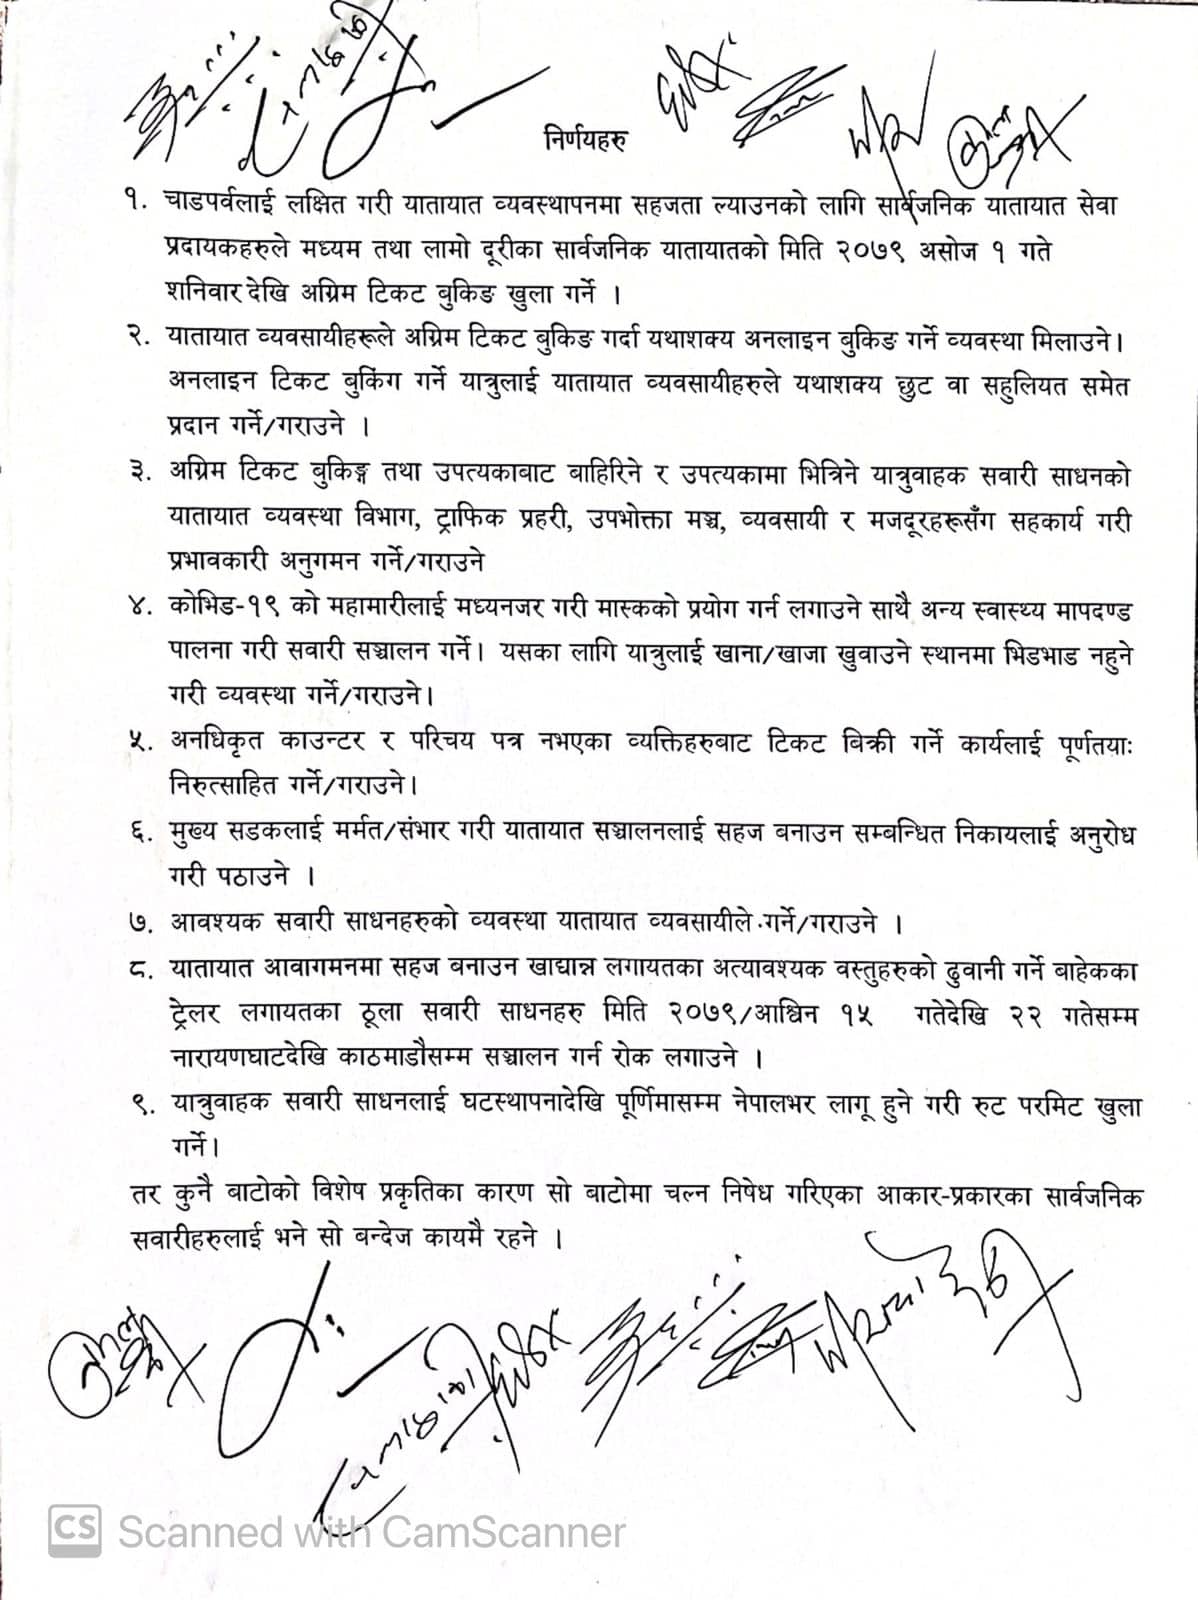 निर्णयहरु
१. चाडपर्वलाई लक्षित गरी यातायात व्यवस्थापनमा सहजता ल्याउनको लागि सार्वजनिक यातायात सेवा
प्रदायकहरुले मध्यम तथा लामो दूरीका सार्वजनिक यातायातको मिति २०७९ असोज १ गते
शनिवार देखि अग्रिम टिकट बुकिङ खुला गर्ने ।
२. यातायात व्यवसायीहरूले अग्रिम टिकट बुकिङ गर्दा यथाशक्य अनलाइन बुकिङ गर्ने व्यवस्था मिलाउने।
अनलाइन टिकट बुकिंग गर्ने यात्रुलाई यातायात व्यवसायीहरुले यथाशक्य छुट वा सहुलियत समेत
प्रदान गर्ने/गराउने ।
३. अग्रिम टिकट बुकिङ्ग तथा उपत्यकाबाट बाहिरिने र उपत्यकामा भित्रिने यात्रुवाहक सवारी साधनको
यातायात व्यवस्था विभाग, ट्राफिक प्रहरी, उपभोक्ता मञ्च, व्यवसायी र मजदूरहरूसँग सहकार्य गरी
प्रभावकारी अनुगमन गर्ने/गराउने
४. कोभिड-१९ को महामारीलाई मध्यनजर गरी मास्कको प्रयोग गर्न लगाउने साथै अन्य स्वास्थ्य मापदण्ड
पालना गरी सवारी सञ्चालन गर्ने। यसका लागि यात्रुलाई खाना/खाजा खुवाउने स्थानमा भिडभाड नहुने
गरी व्यवस्था गर्ने/गराउने।
५. अनधिकृत काउन्टर र परिचय पत्र नभएका व्यक्तिहरुबाट टिकट बिक्री गर्ने कार्यलाई पूर्णतयाः
निरुत्साहित गर्ने/गराउने।
६. मुख्य सडकलाई मर्मत/संभार गरी यातायात सञ्चालनलाई सहज बनाउन सम्बन्धित निकायलाई अनुरोध
गरी पठाउने ।
७. आवश्यक सवारी साधनहरुको व्यवस्था यातायात व्यवसायीले गर्ने/गराउने ।
८. यातायात आवागमनमा सहज बनाउन खाद्यान्न लगायतका अत्यावश्यक वस्तुहरुको ढुवानी गर्ने बाहेकका
ट्रेलर लगायतका ठूला सवारी साधनहरु मिति २०७९/आश्विन १५ गतेदेखि २२ गतेसम्म
नारायणघाटदेखि काठमाडौसम्म सञ्चालन गर्न रोक लगाउने ।
९. यात्रुवाहक सवारी साधनलाई घटस्थापनादेखि पूर्णिमासम्म नेपालभर लागू हुने गरी रुट परमिट खुला
गर्ने।
तर कुनै बाटोको विशेष प्रकृतिका कारण सो बाटोमा चल्न निषेध गरिएका आकार-प्रकारका सार्वजनिक
सवारीहरुलाई भने सो बन्देज कायमै रहने ।
CS Scanned with CamScanner